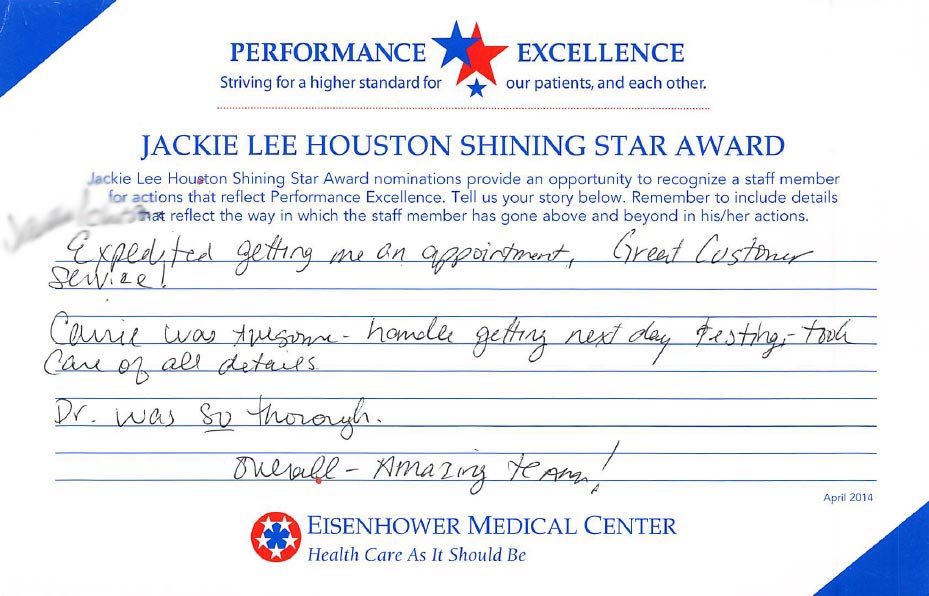 PERFORMANCE EXCELLENCE
Striving for a higher standard for our patients, and each other.
JACKIE LEE HOUSTON SHINING STAR AWARD
Jackie Lee Houston Shining Star Award nominations provide an opportunity to recognize a staff member
for actions that reflect Performance Excellence. Tell us your story below. Remember to include details
that reflect the way in which the staff member has gone above and beyond in his/her actions.
Expedited getting me an appointment, Great Customer
Service!
Carrie was awesome - handle getting next day testing - took
Care of all details
Dr. was so thorough.
Overall - Amazing team!
April 2014
EISENHOWER MEDICAL CENTER
Health Care As It Should Be